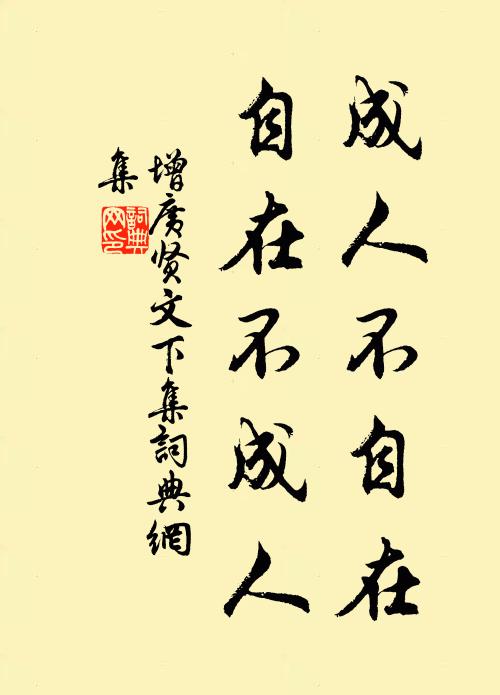 成人不自在
自在不成人
增广贤文下集詞典網
集
詞典
网印